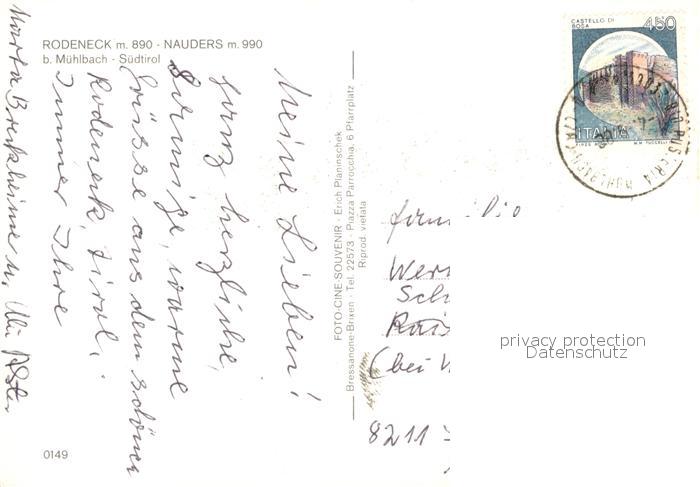 RODENECK m. 890 - NAUDERS m. 990
b. Mühlbach - Südtirol
Meine Lieben!
ganz herzliche,
sonnige, warme
Grüsse aus dem schönen
Rodeneck, Tirol,
Immer Ihre
Marta u. Ulu
0149
FOTO-CINE-SOUVENIR - Erich Planinschek
Bressanone-Brixen - Tel. 22573 - Piazza Parrocchia, 6 Pfarrplatz
Riprod. vietata
CASTELLO DI
BOSA
450
ITALIA
Fam.
Wer
Sch
(bei
8211
privacy protection
Datenschutz